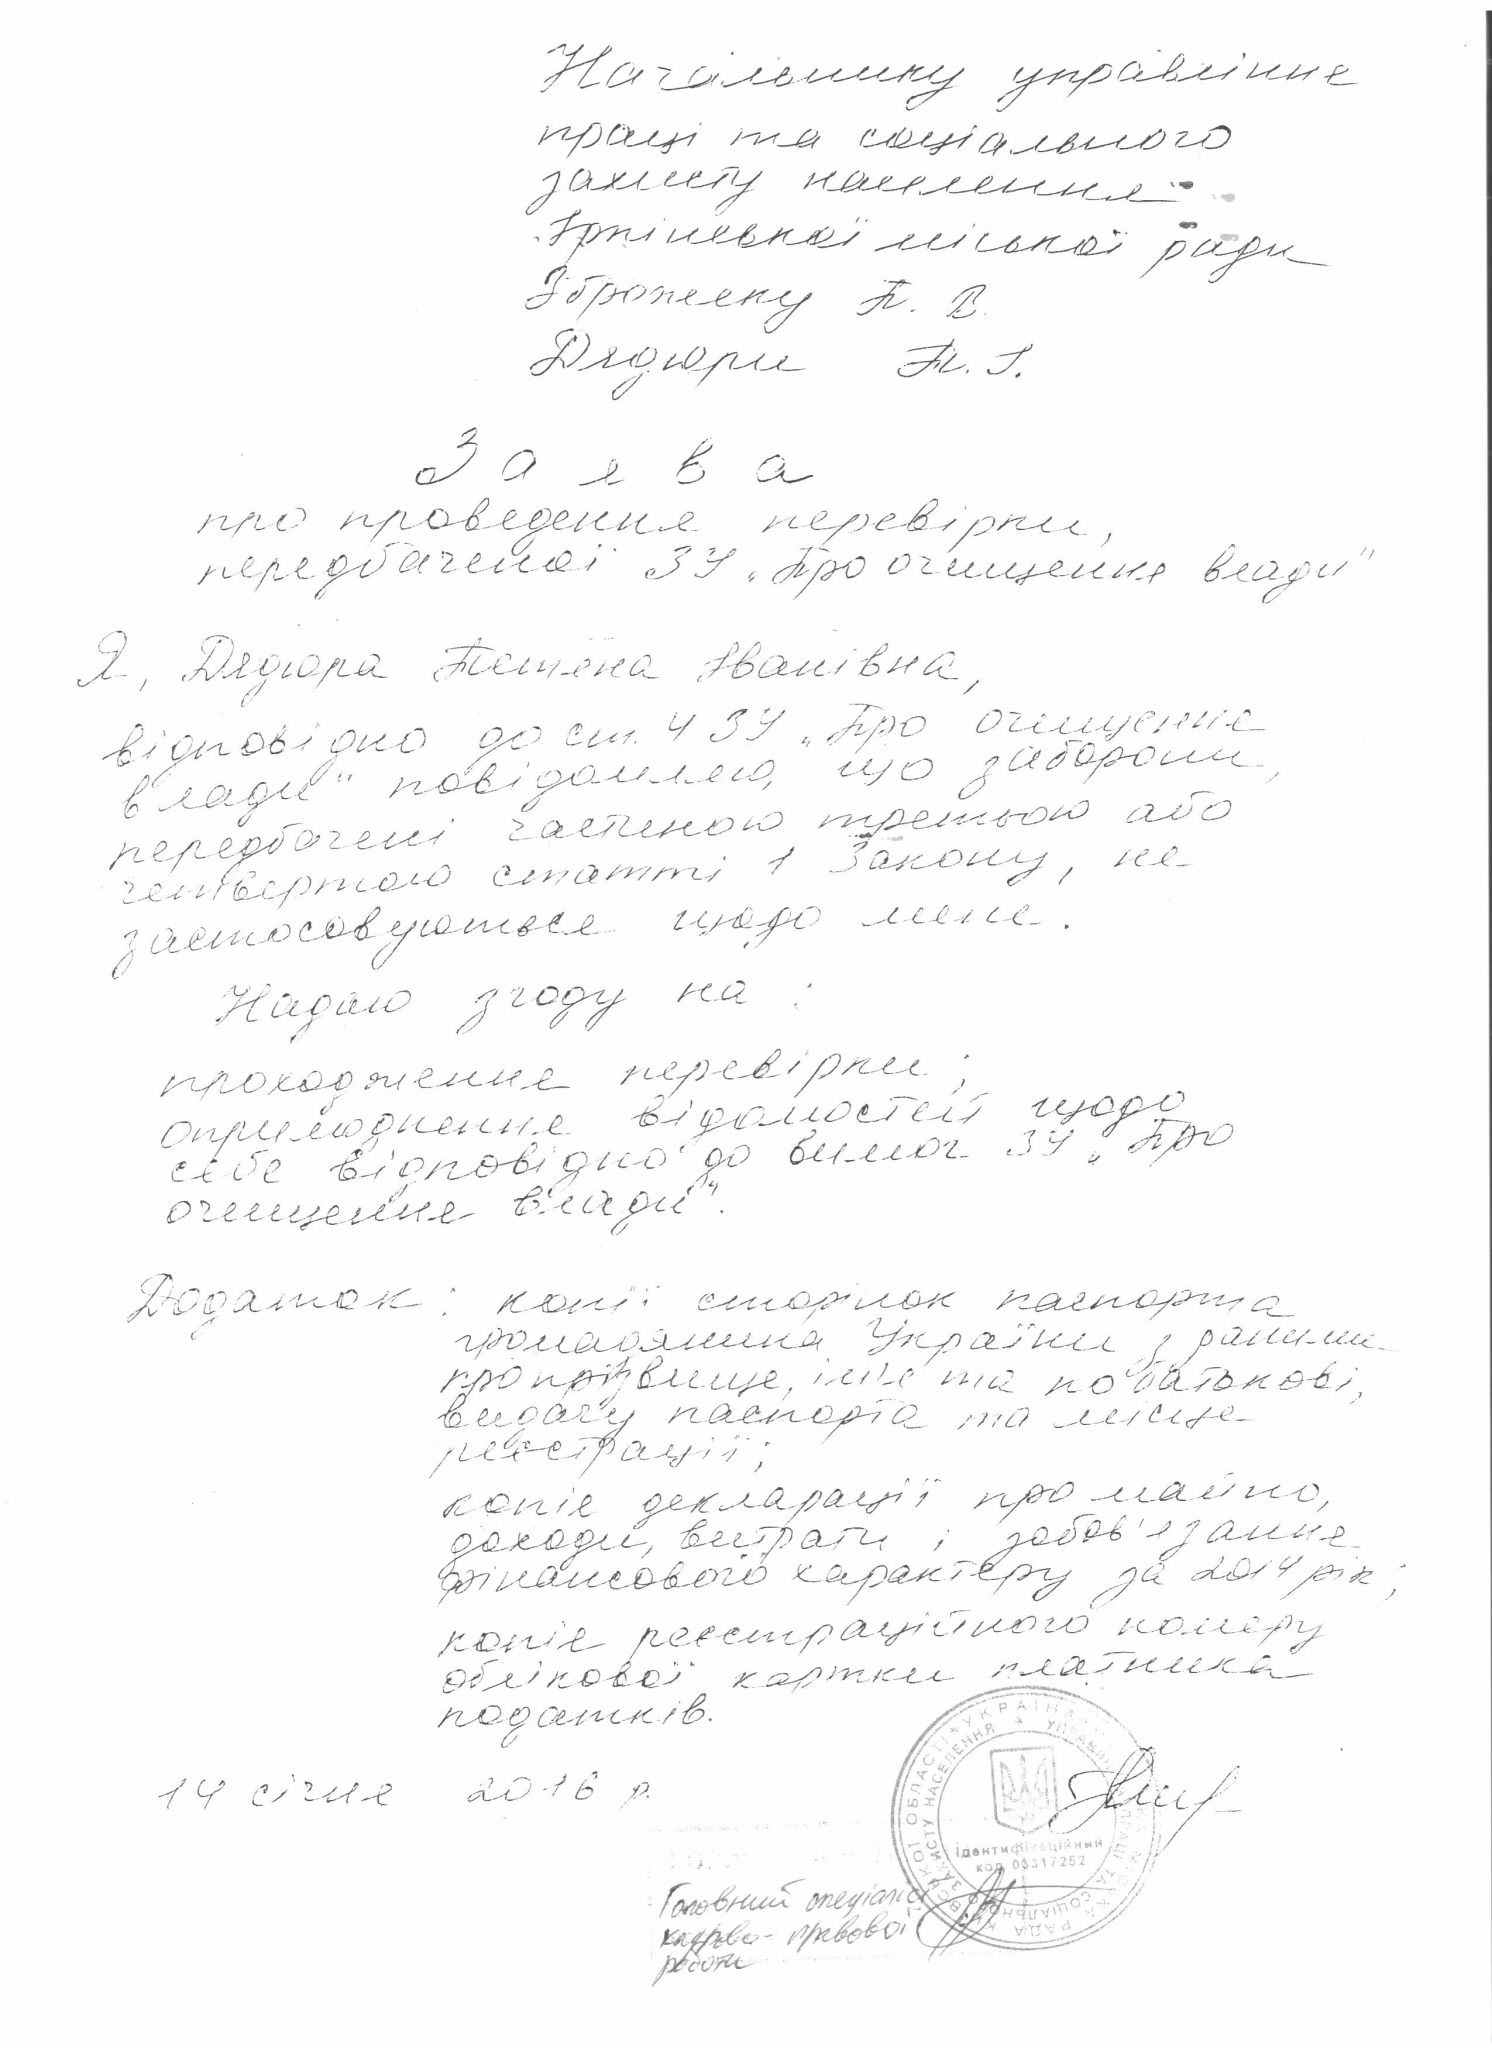 Начальнику управління
праці та соціального
захисту населення
Ірпінської міської ради
Зброжеку П. В.
Дядюри Т. І.
Заява
про проведення перевірки,
передбаченої ЗУ „Про очищення влади"
Я, Дядюра Тетяна Іванівна,
відповідно до ст. 4 ЗУ „Про очищення
влади" повідомляю, що заборони,
передбачені частиною третьою або
четвертою статті 1 Закону, не
застосовуються щодо мене.
Надаю згоду на:
проходження перевірки;
оприлюднення відомостей щодо
себе відповідно до вимог ЗУ „Про
очищення влади".
Додаток: копії сторінок паспорта
громадянина України з даними
про прізвище, ім'я та по батькові,
видачу паспорта та місце
реєстрації;
копія декларації про майно,
доходи, витрати і зобов'язання
фінансового характеру за 2014 рік;
копія реєстраційного номеру
облікової картки платника
податків.
14 січня 2016 р.
УКРАЇНА
ОБЛАСТІ
ЗАХИСТУ НАСЕЛЕННЯ
Ідентифікаційний
код 03317252
Головний спеціаліст
кадрово-правової
роботи